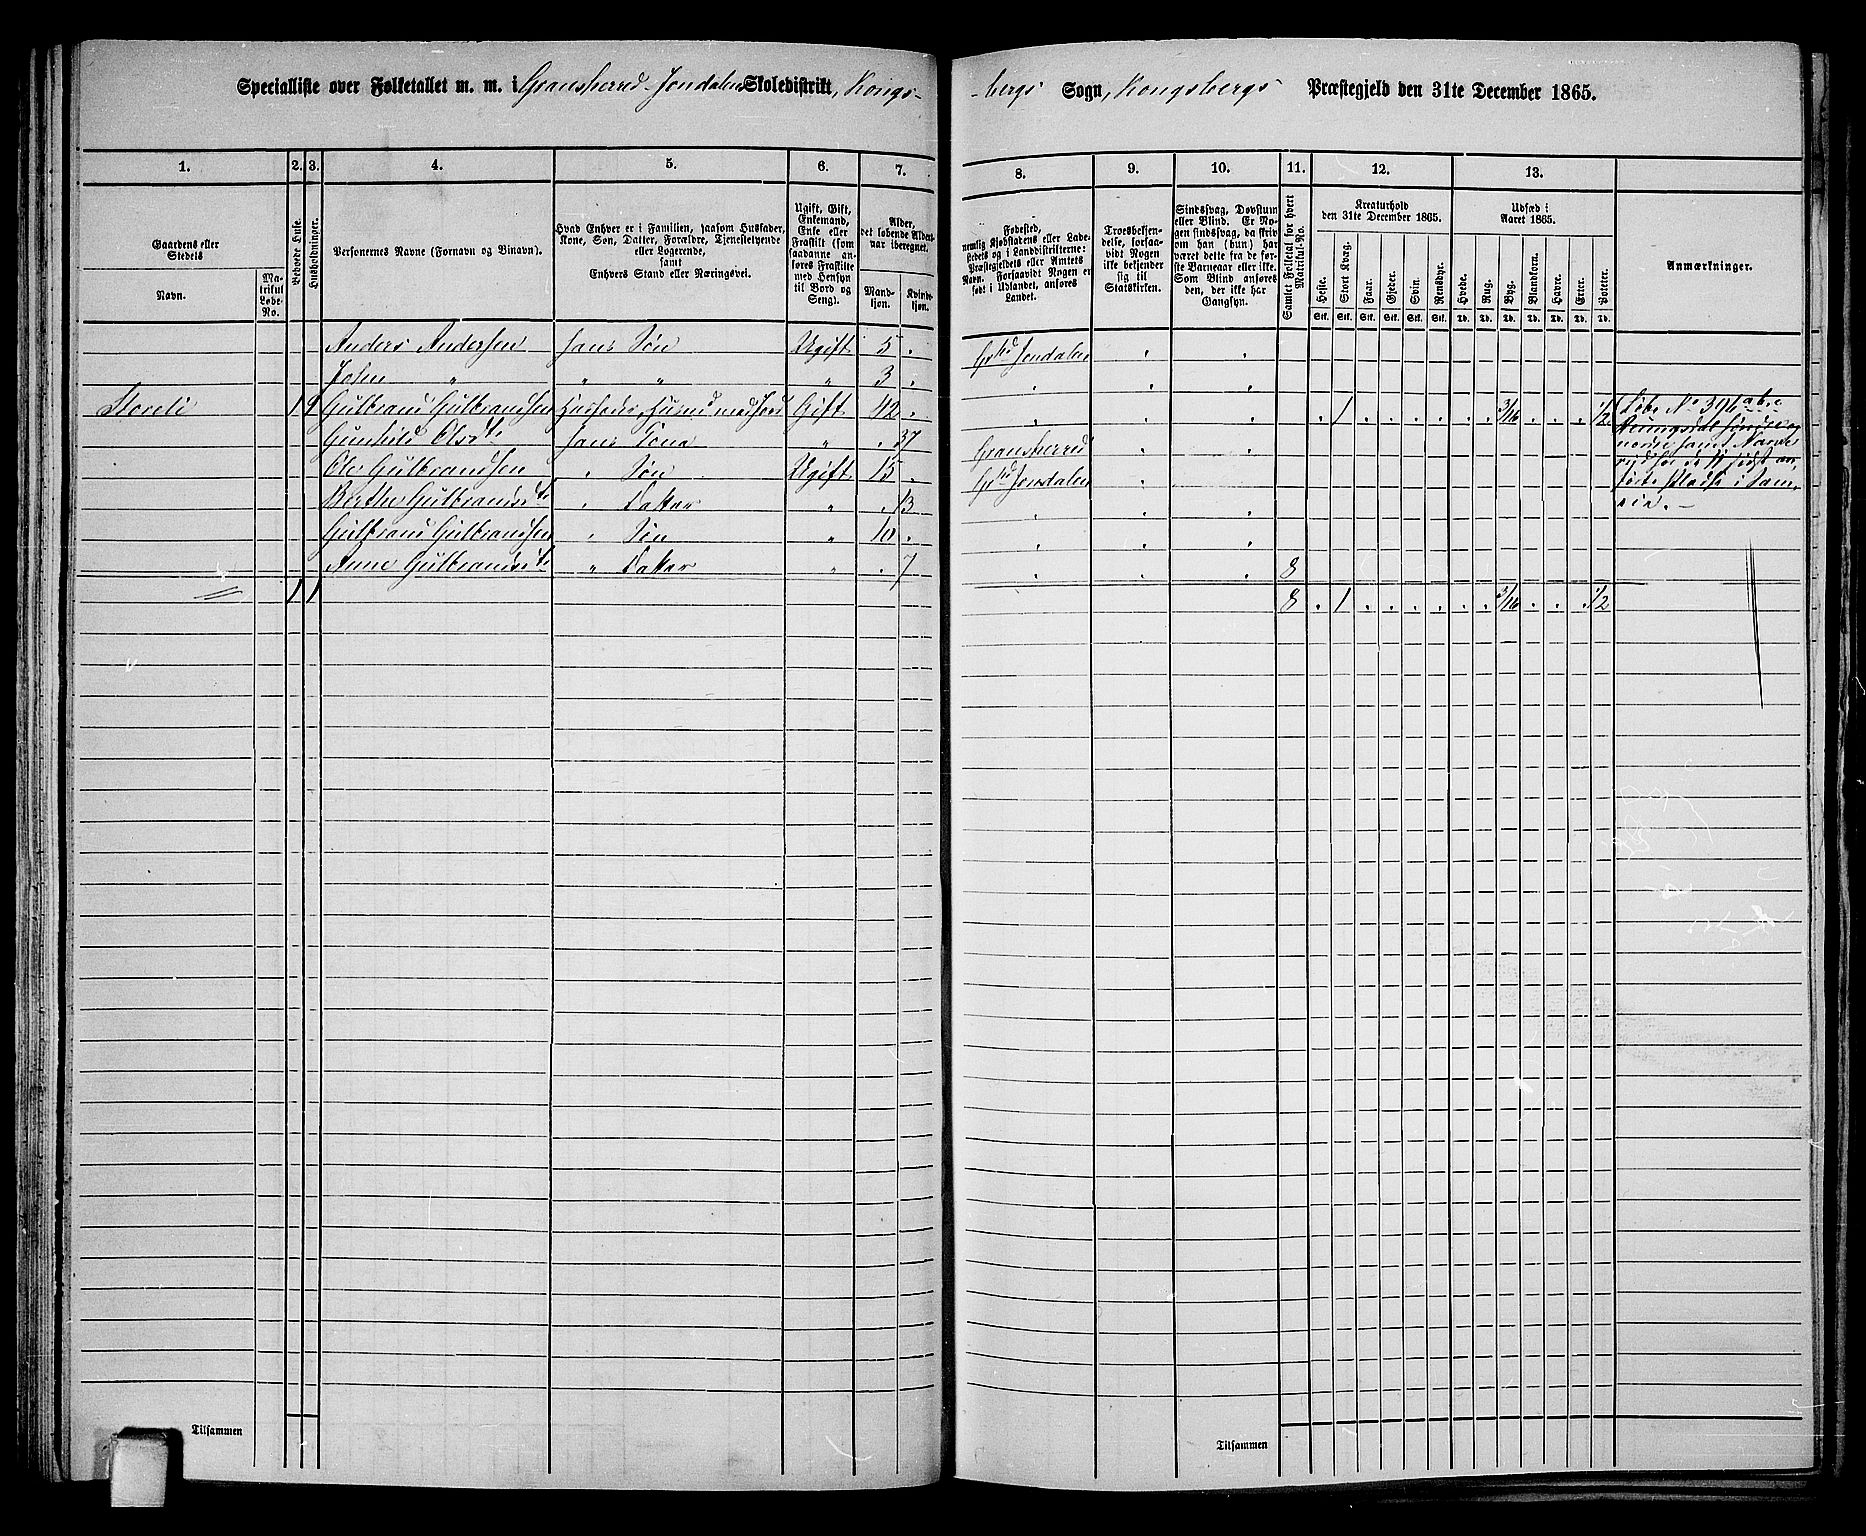 Specialliste over Folketallet m. m. i Gransherred-Jondalens Skoledistrikt, Kongs-
-bergs Sogn, Kongsbergs Præstegjeld den 31te December 1865.
1. 2. 3. 4. 5. 6. 7. 8. 9. 10. 11. 12. 13.
Gaardens eller Stedets
Navn.
Matrikul Løbe-No.
Beboede Huse.
Husholdninger.
Personernes Navne (Fornavn og Binavn).
Hvad Enhver er i Familien, saasom Husfader, Kone, Søn, Datter, Forældre, Tjenestetyende eller Logerende, samt Enhvers Stand eller Næringsvei.
Ugift, Gift, Enkemand, Enke eller Fraskilt (som saadanne anføres Fraskilte med Hensyn til Bord og Seng).
Alder, det løbende Aldersaar iberegnet.
Mandkjøn. Kvindekjøn.
Fødested, nemlig Kjøbstadens eller Ladestedets og i Landdistrikterne: Præstegjeldets eller Amtets Navn. Forsaavidt Nogen er født i Udlandet, anføres Landet.
Troesbekjendelse, forsaavidt Nogen ikke bekjender sig til Statskirken.
Sindssvag, Døvstum eller Blind. Er Nogen sindssvag, da skrives om han (hun) har været dette fra de første Barneaar eller ikke. Som Blind anføres den, der ikke har Gangsyn.
Samlet Folketal for hvert Matrikul-No.
Kreaturhold den 31te December 1865.
Heste. Stort Kvæg. Faar. Gjeder. Svin. Rensdyr.
Stk. Stk. Stk. Stk. Stk. Stk.
Udsæd i Aaret 1865.
Hvede. Rug. Byg. Blandkorn. Havre. Erter. Poteter.
Td. Td. Td. Td. Td. Td. Td.
Anmærkninger.
Anders Andersen hans Søn Ugift 5 . Grhd Jondalen
John " " " " 3 .
Storeli 1 9 Gulbrand Gulbrandsen Husfader Husmand med Jord Gift 42 . . 1 . . . . . . 3/16 . . . 1/2 Løbe No 396
Gunhild Olsdt hans Kona " . 37 Gransherred
Ole Gulbrandsen " Søn Ugift 15 . Grhd Jondalen
Berthe Gulbrandsdt " Datter " . 13
Gulbrand Gulbrandsen " Søn " 10 .
Anne Gulbrandsdt " Datter " . 7 8
1 1 8 . 1 . . . . . . 3/16 . . . 1/2
Tilsammen
Tilsammen